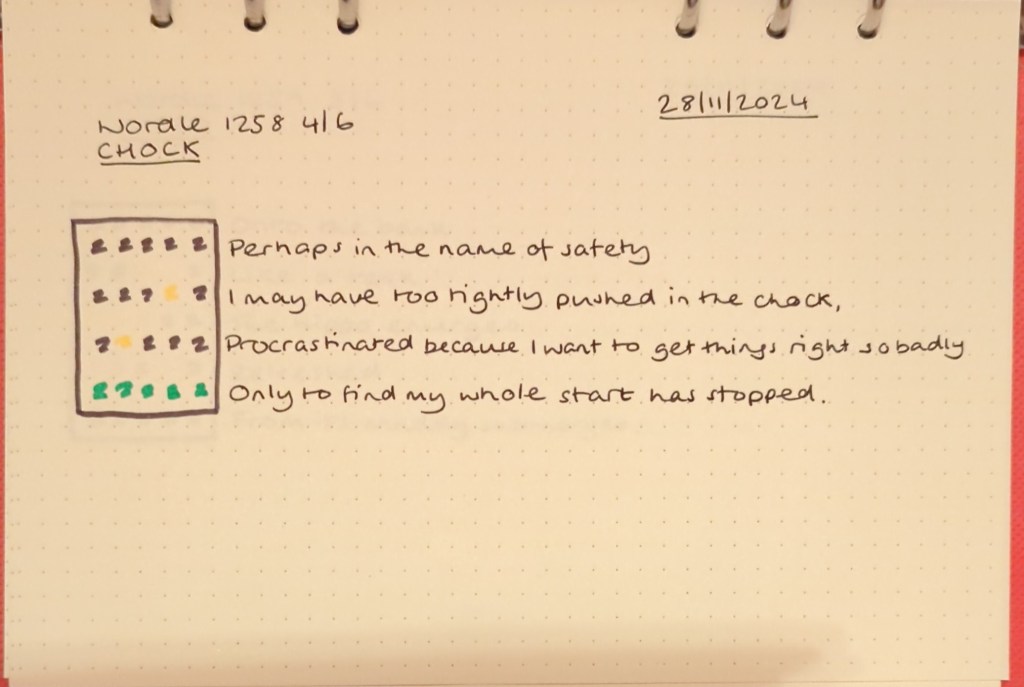 Wordle 1258 4/6
CHOCK
28/11/2024
Perhaps in the name of safety
I may have too tightly pushed in the chock,
Procrastinated because I want to get things right so badly
Only to find my whole start has stopped.